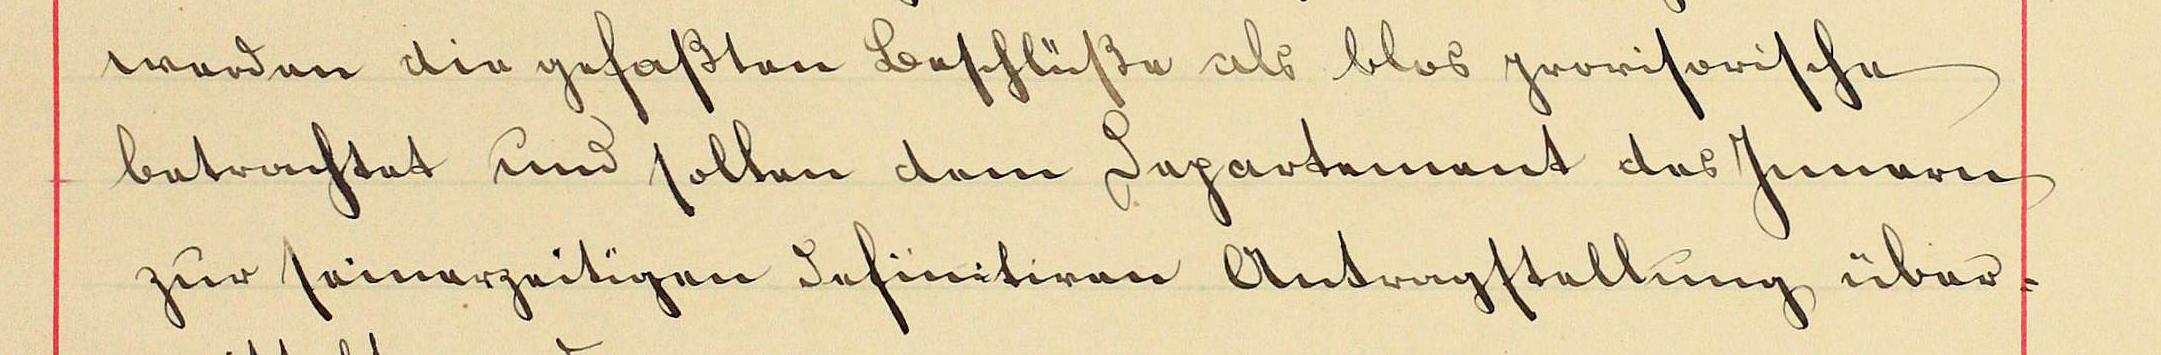 werden die gefaßten Beschlüße als blos provisorische
betrachtet und sollen dem Departement des Innern
zur seinerzeitigen definitiven Antragstellung über-